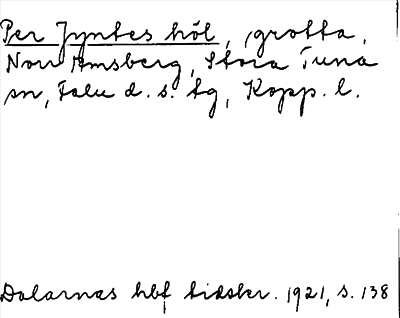 Per Jyntes hôl, grotta,
Norr Amsberg, Stora Tuna
sn, Falu d. s. tg, Kopp. l.
Dalarnas hbf tidskr. 1921, s. 138